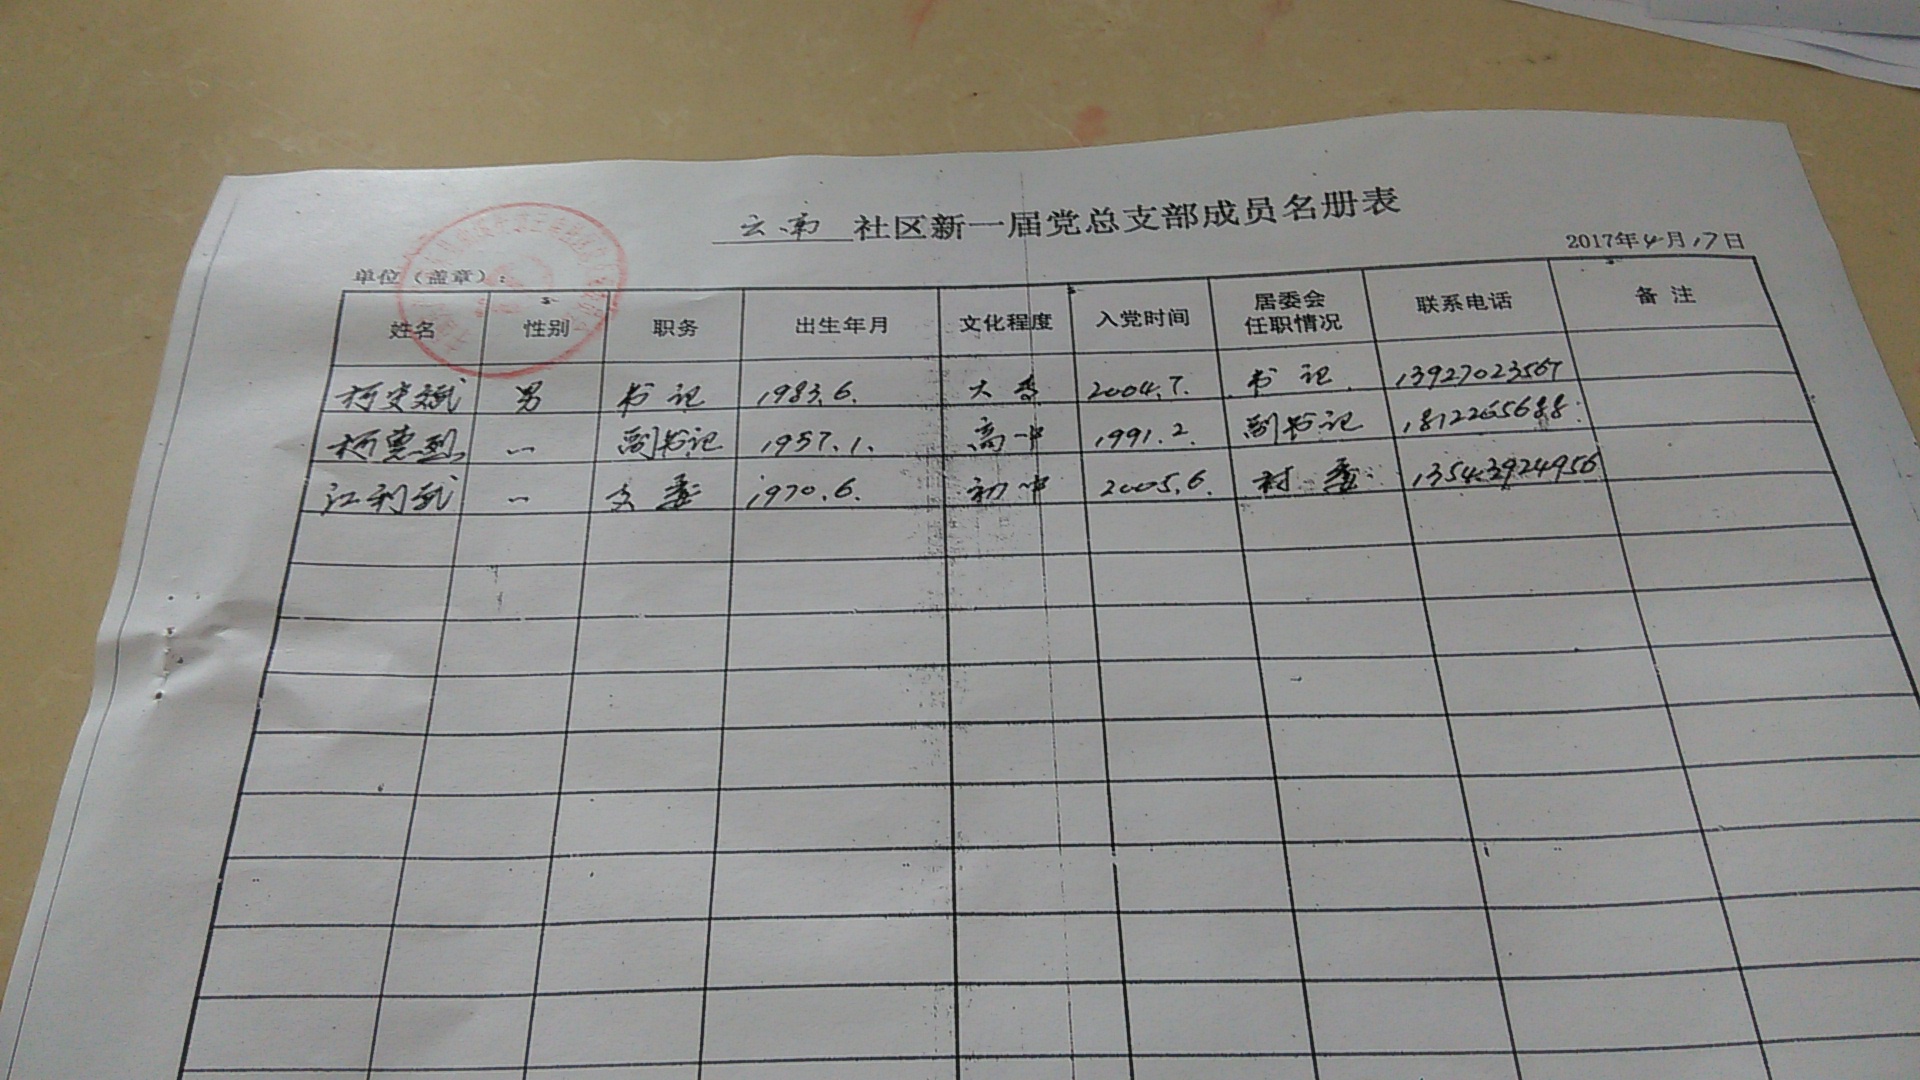 云南 社区新一届党总支部成员名册表
2017年4月17日
单位（盖章）：
姓名 性别 职务 出生年月 文化程度 入党时间 居委会任职情况 联系电话 备注
男 书记 1983.6. 大专 2004.7. 书记. 13927023567
柯惠烈 〃 副书记 1957.1. 高中 1991.2. 副书记
江利武 〃 支委 1970.6. 初中 2005.6. 村委. 13543924956